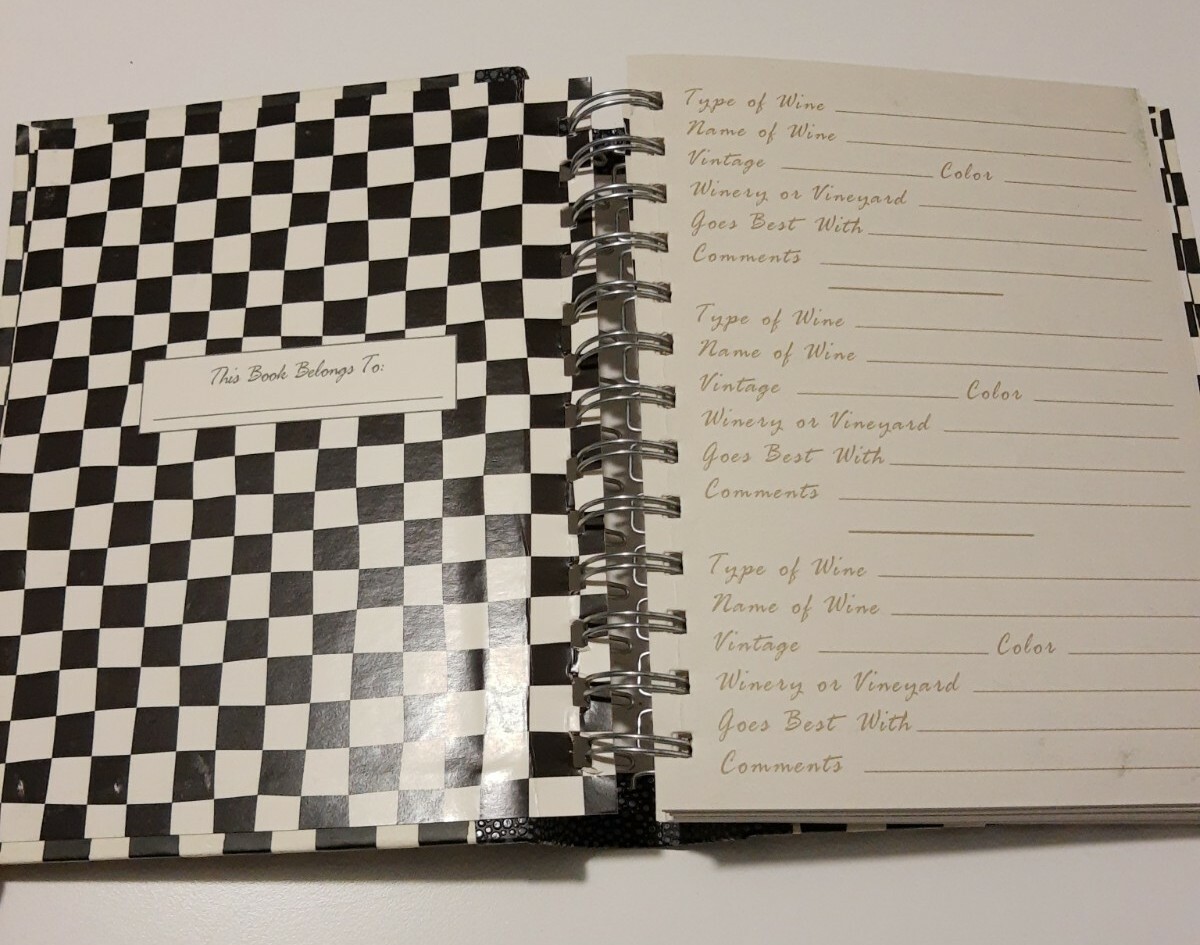 This Book Belongs To:
Type of Wine
Name of Wine
Vintage Color
Winery or Vineyard
Goes Best With
Comments
Type of Wine
Name of Wine
Vintage Color
Winery or Vineyard
Goes Best With
Comments
Type of Wine
Name of Wine
Vintage Color
Winery or Vineyard
Goes Best With
Comments